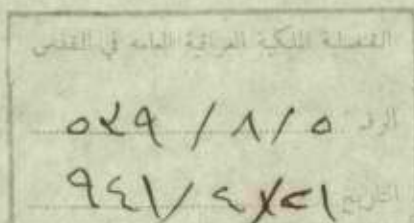 القنصلية الملكية العراقية العامه في القدس
الرقم ٥٢٩ / ٨ / ٥
التاريخ ٩٤١ / ٤ / ٢١